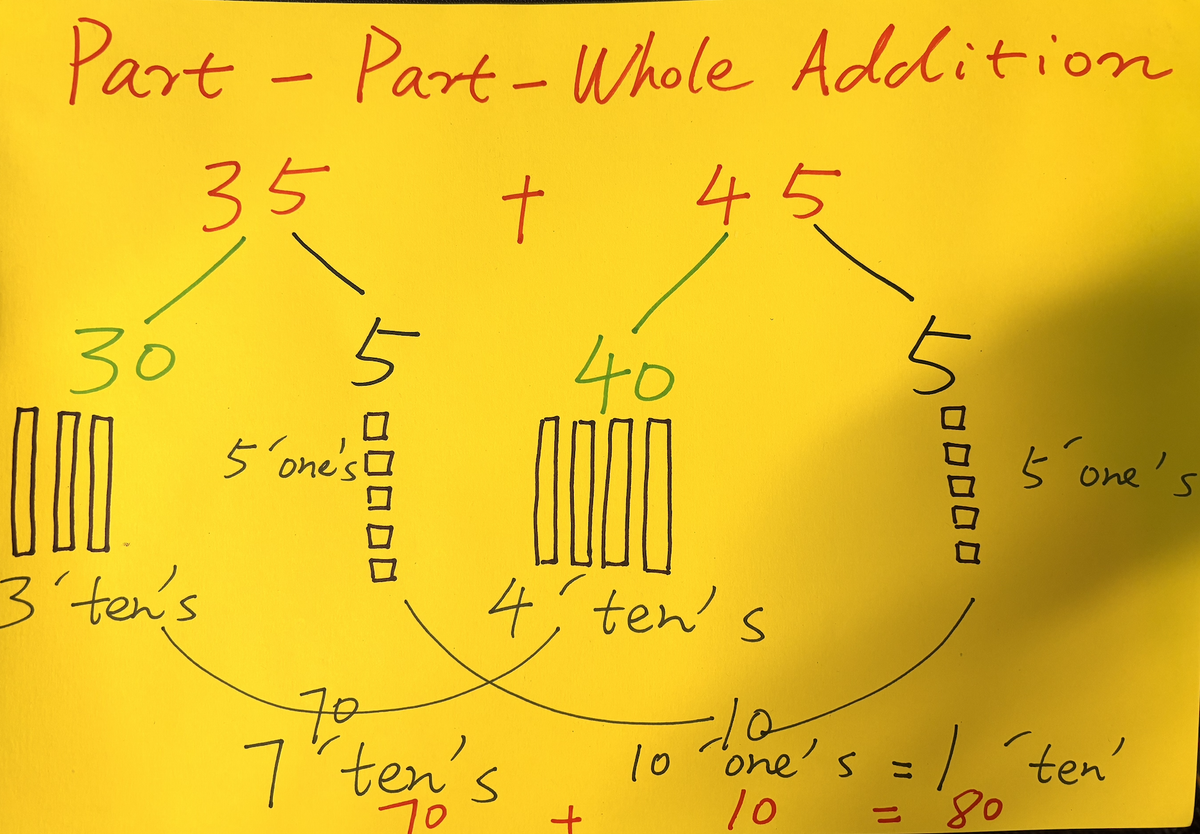 Part - Part - Whole Addition
35 + 45
30 5 40 5
5 ´one's 5 ´one's
3 ´ten's 4 ´ten's
70 10
7 ´ten's 10 ´one's = 1 ´ten'
70 + 10 = 80